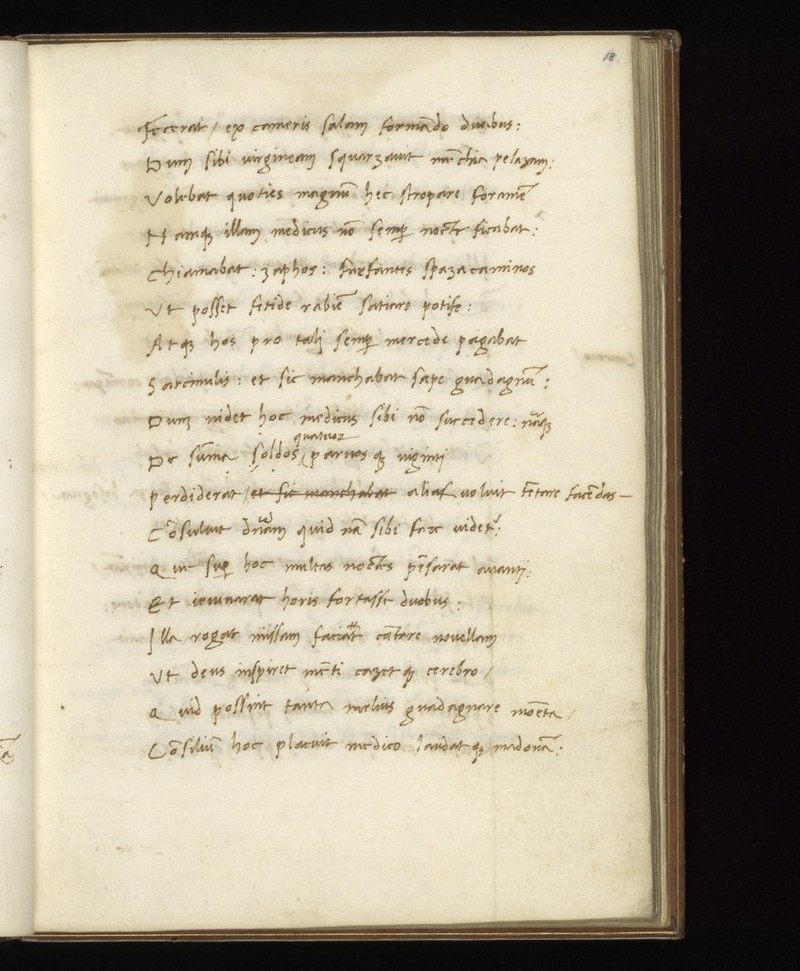 18.
Fecerat / ex cameris salam formādo duabus:
Dum sibi virgineam squarzauit māchia pelazam:
Volebat quoties magnū hec stropare foramē
Namq; illam medicus nō semp nocte ficabat:
Chiamabat: zaphos: furfantes spazacaminos
Vt posset fetide rabiē satiare potife:
Atq; hos pro talj semp mercede pagabat
Sarcinulis: et sic manchabat sape guadagnū:
Dum uidet hoc medicus sibi nō succedere: nāq;
quatuor
De sūma soldos paruos q; uigintj
Perdiderat / et sic manchabat alias uoluit tētare facēdas —
Cōsuluit quid nā sibi uidet:
Qui sup hoc multas noctes pēsarat auantj:
Et ieiunarat horis fortasse duobus:
Illa rogat missam faciat cātare nouellam
Vt deus inspiret mēti cazet q; cerebro /
Quid possint tanta melius guadagnare moēta /
Cōsiliū hoc placuit medico laudat q; madonā: